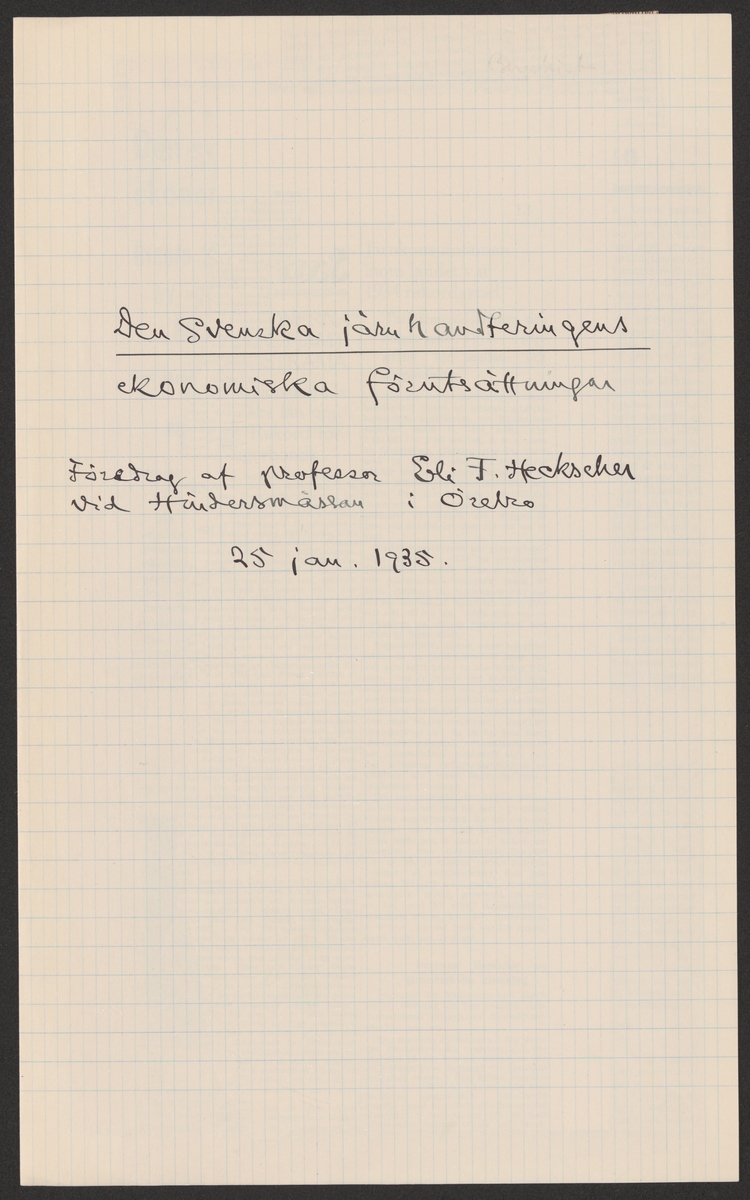 Den Svenska järnhandteringens
ekonomiska förutsättningar
Föredrag af professor Eli F. Heckscher
vid Hindersmässan i Örebro
25 jan. 1935.